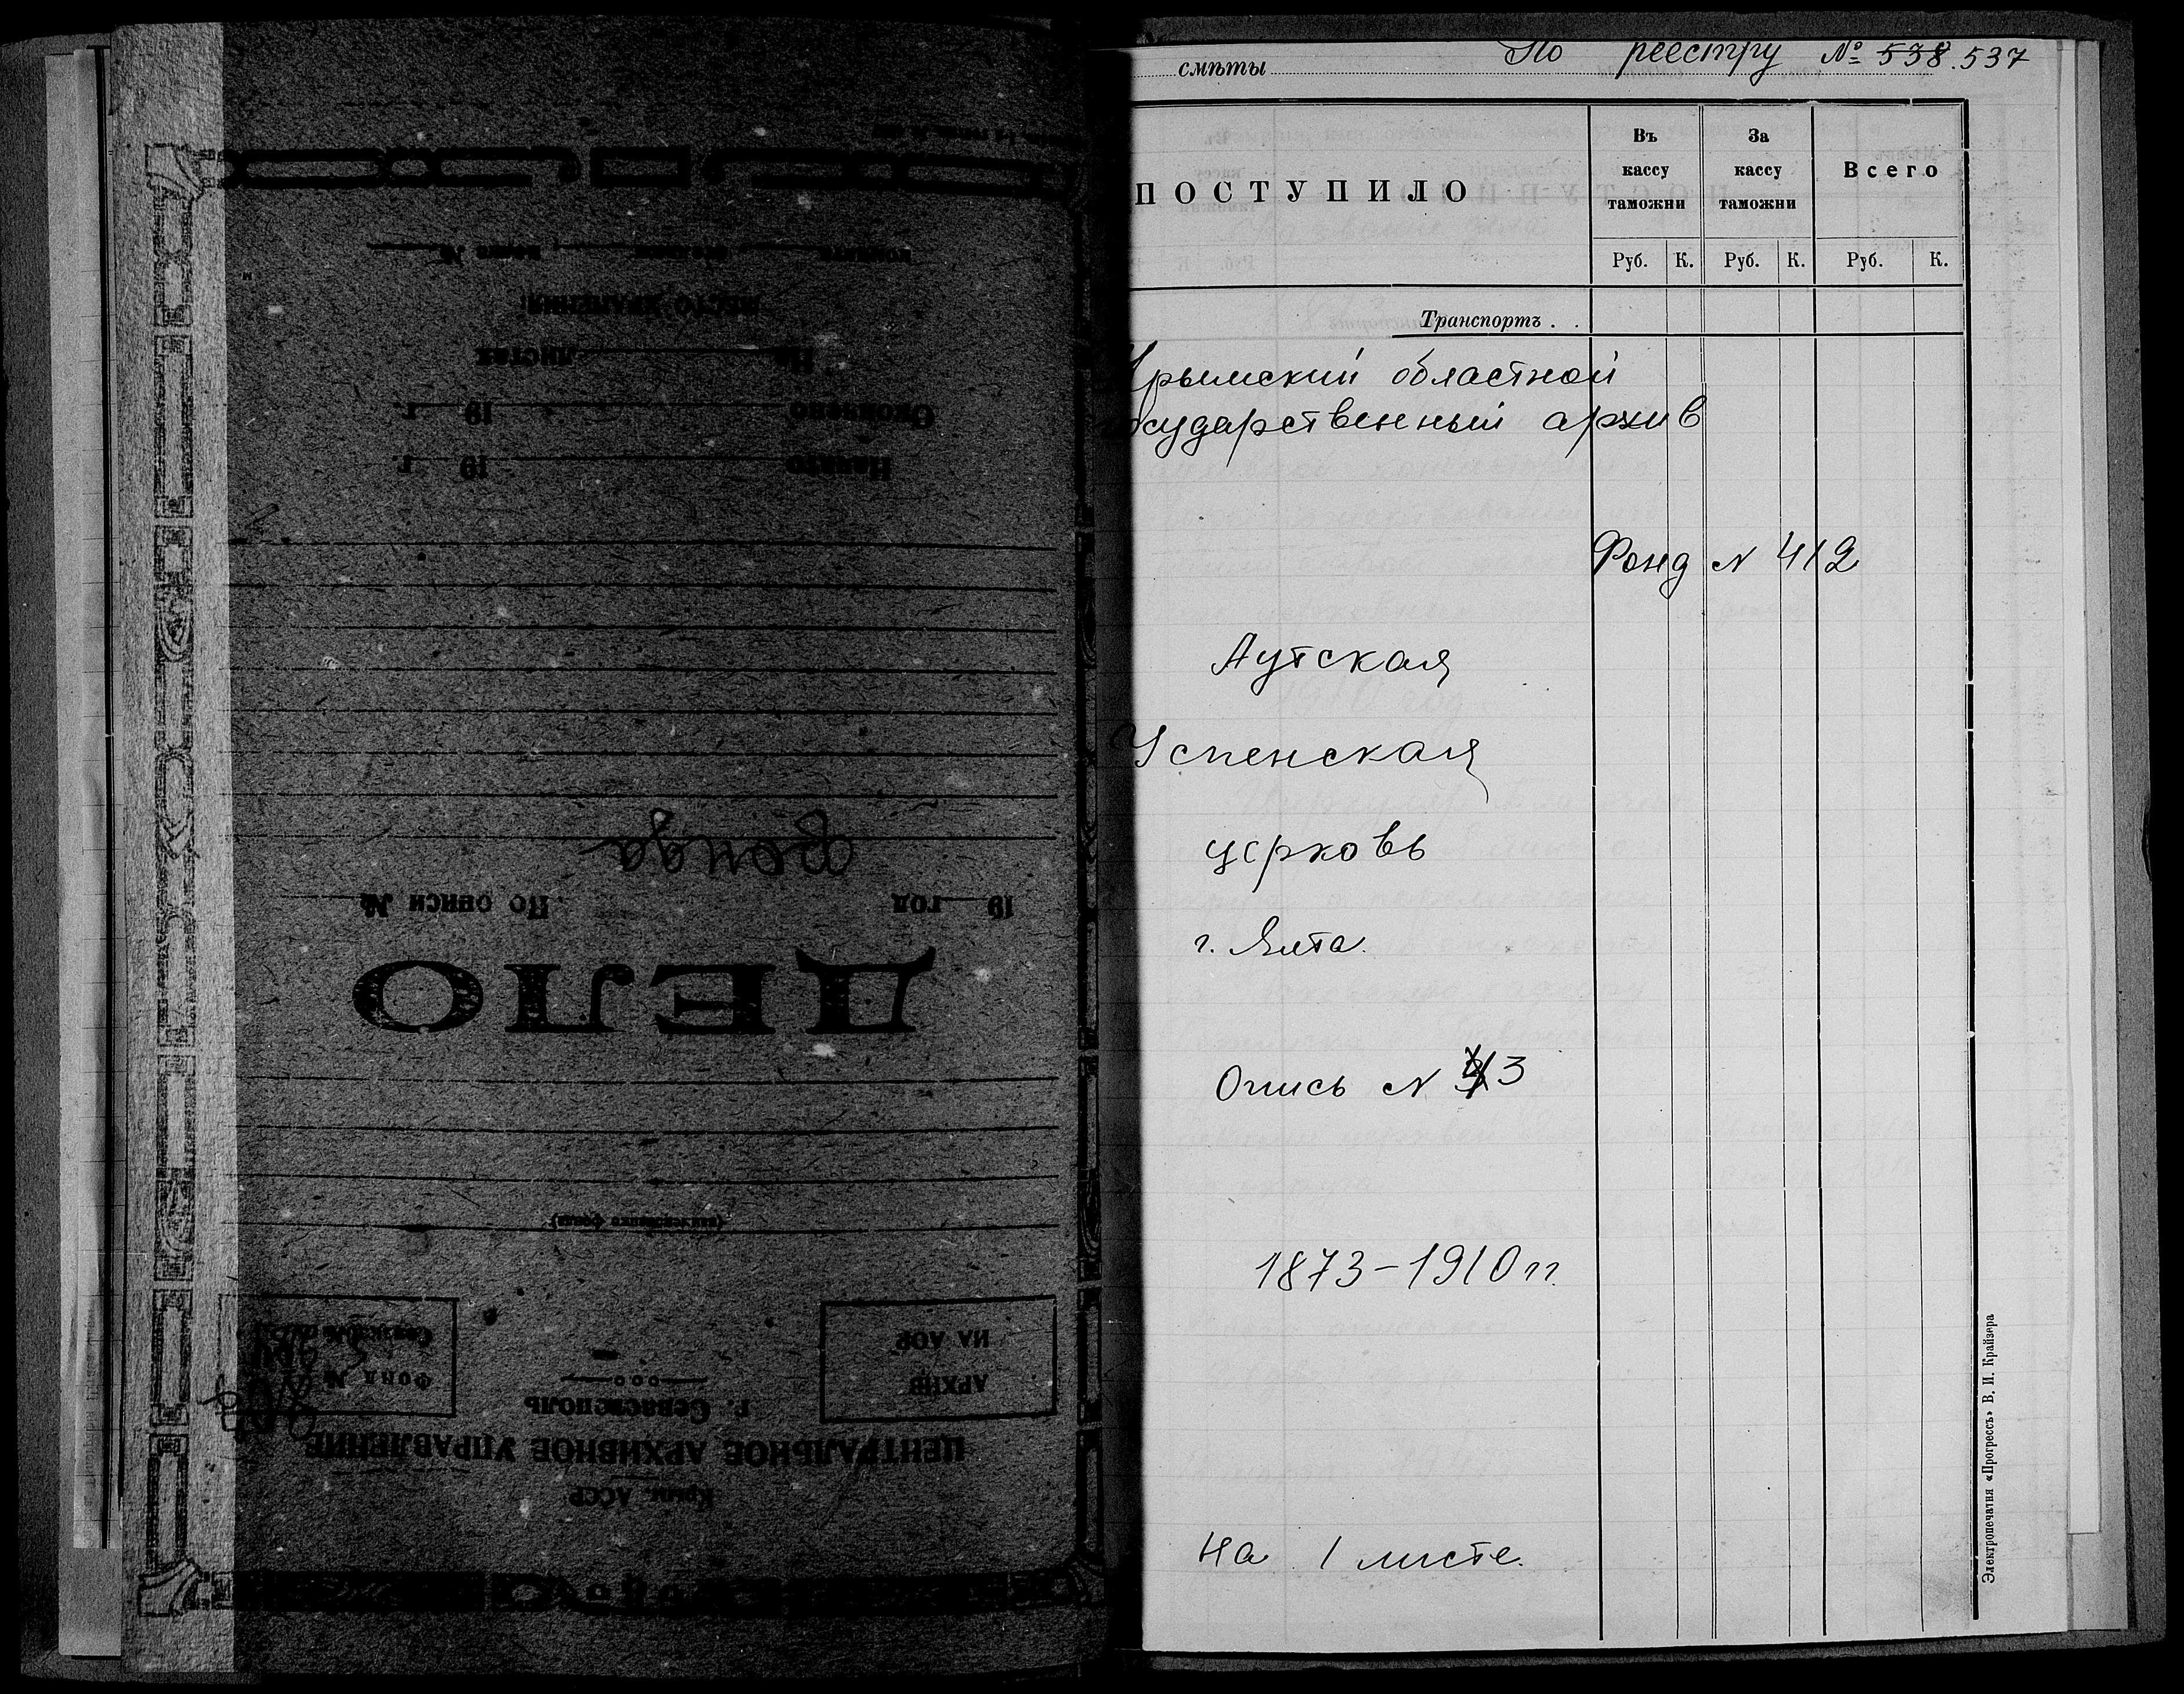 По реестру № 538. 537
смѣты
ПОСТУПИЛО
Въ кассу таможни
За кассу таможни
Всего
Руб. К. Руб. К. Руб. К.
Транспортъ . .
Крымский областной
государственный архив
Фонд N 412
Аутская
Успенская
церковь
г. Ялта.
Опись N 3
1873-1910 гг.
На 1 листе.
Электропечатня «Прогрессъ» В. И. Крайзера
Крым. АССР
ЦЕНТРАЛЬНОЕ АРХИВНОЕ УПРАВЛЕНИЕ
г. Севастополь
АРХИВ
НА АОР
Фонд №
(наименование фонда)
ДЕЛО
19 год По описи №
фонда
Начато 19 г.
Окончено 19 г.
На листах
МЕСТО ХРАНЕНИЯ: